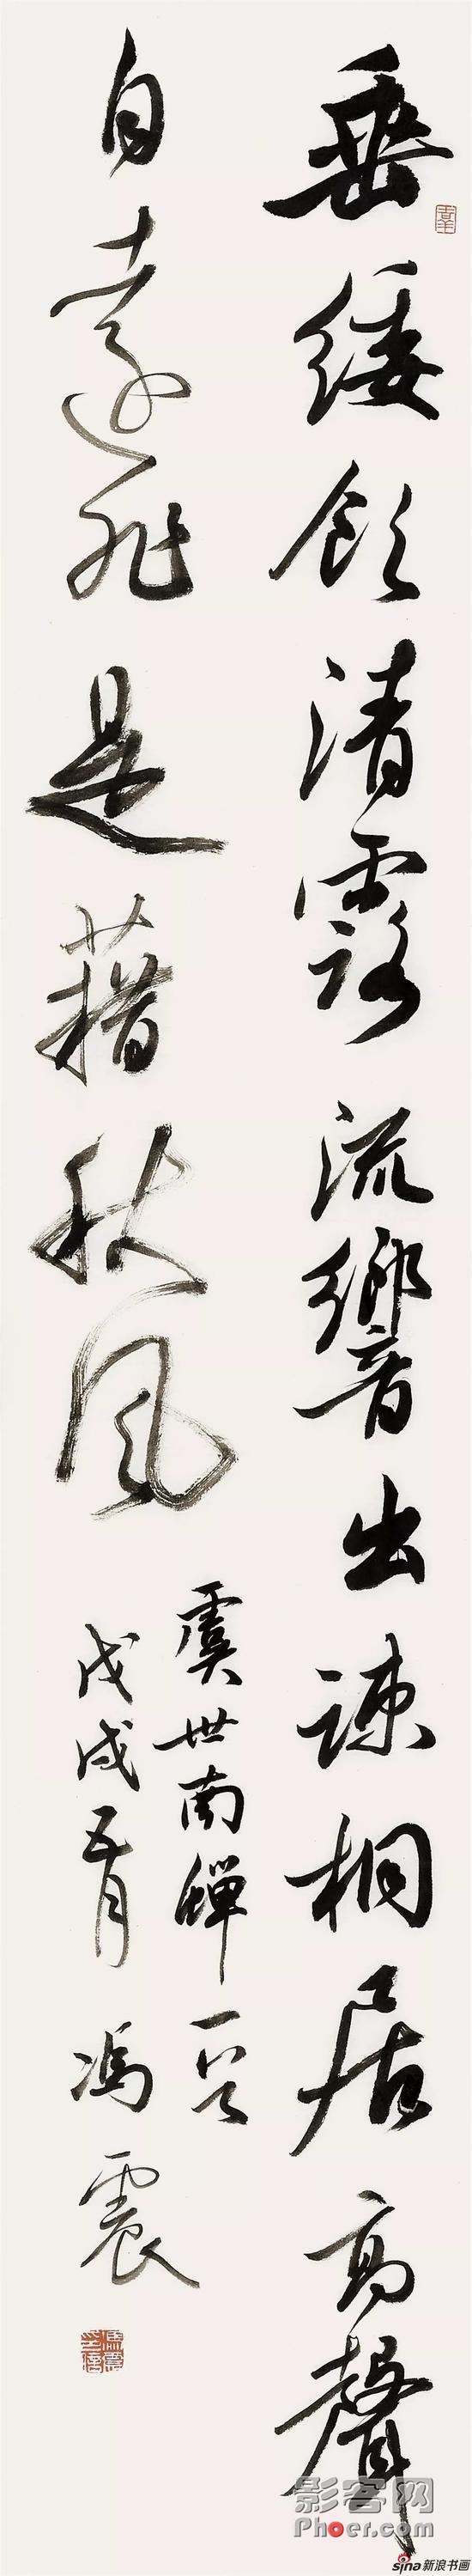 垂緌飲清露流響出疎桐居高聲
自遠非是藉秋風
虞世南蟬一首
戊戌五月馮震
影客网
Phoer.com
sina新浪书画